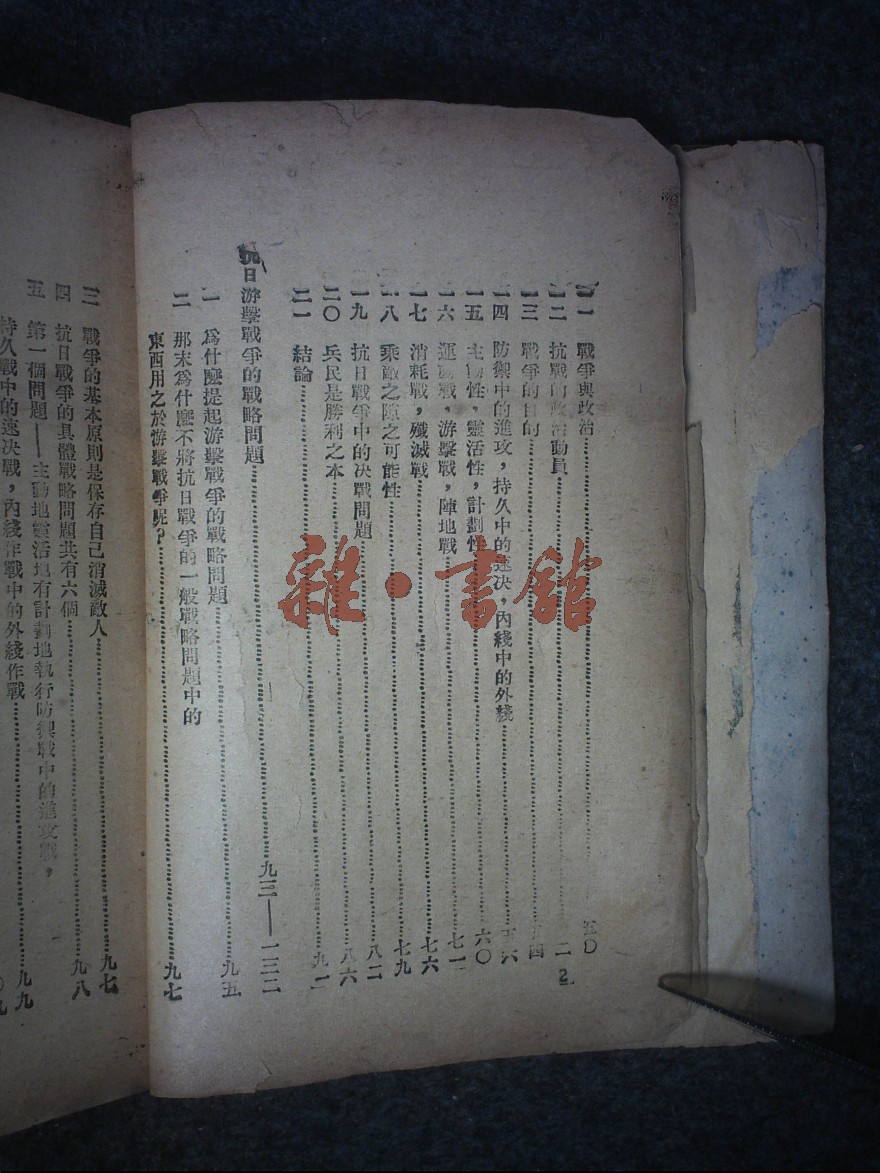 一一 戰爭與政治……五〇
一二 抗戰的政治動員……二
一三 戰爭的目的……四
一四 防禦中的進攻,持久中的速决,內綫中的外綫……五六
一五 主動性,靈活性,計劃性……六〇
一六 運動戰,游擊戰,陣地戰……七一
一七 消耗戰,殲滅戰……七六
一八 乘敵之隙之可能性……七九
一九 抗日戰爭中的决戰問題……八二
二〇 兵民是勝利之本……八六
二一 結論……九一
抗日游擊戰爭的戰略問題……九三——一三二
一 爲什麽提起游擊戰爭的戰略問題……九五
二 那末爲什麽不將抗日戰爭的一般戰略問題中的
東西用之於游擊戰爭呢?……九七
三 戰爭的基本原則是保存自己消滅敵人……九七
四 抗日戰爭的具體戰略問題共有六個……九八
五 第一個問題——主動地靈活地有計劃地執行防禦戰中的進攻戰,
持久戰中的速决戰,內綫作戰中的外綫作戰……九九
雜·書館